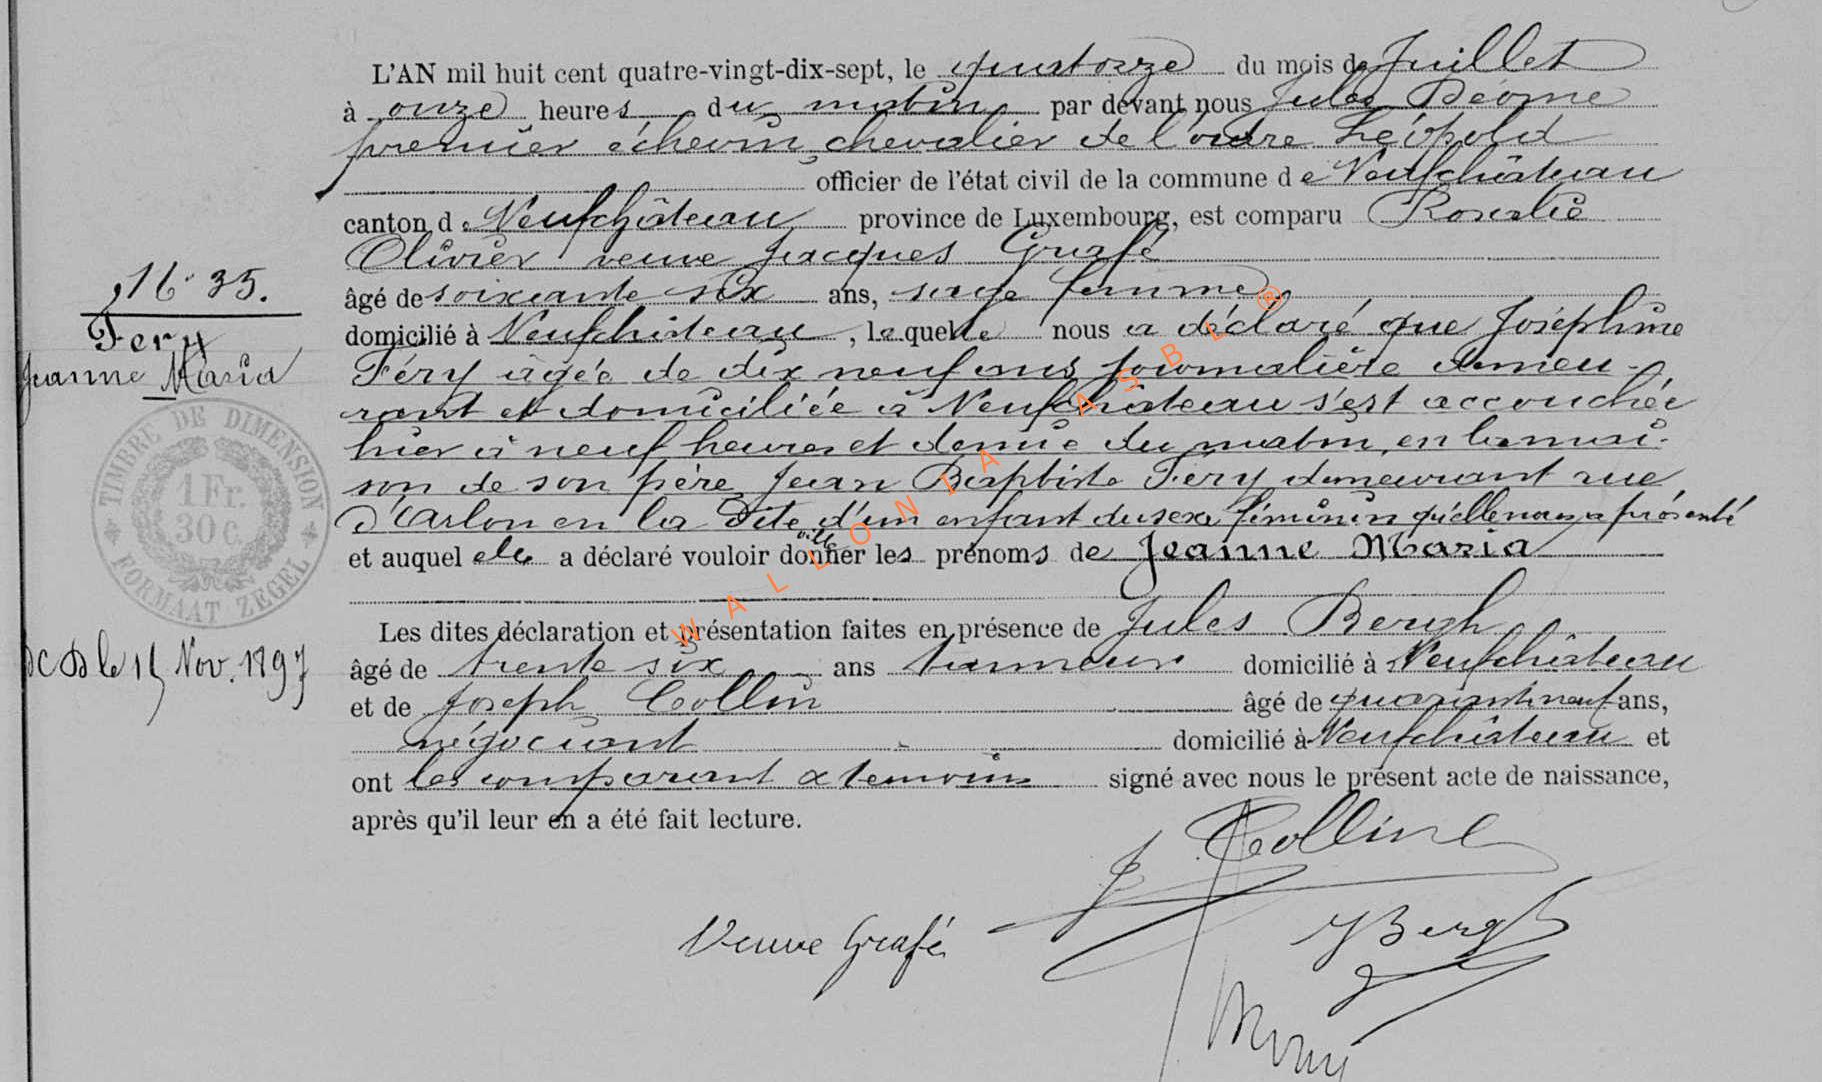 L'AN mil huit cent quatre-vingt-dix-sept, le quatorze du mois de Juillet
à onze heures du matin par devant nous Jules Déome
premier échevin, chevalier de l'ordre Léopold
officier de l'état civil de la commune de Neufchâteau
canton de Neufchâteau province de Luxembourg, est comparu Rosalie
Olivier veuve Jacques Grafé
âgé de soixante six ans, sage femme
domicilié à Neufchâteau, laquelle nous a déclaré que Joséphine
Féry âgée de dix neuf ans, journalière demeu-
rant et domiciliée à Neufchâteau s'est accouchée
hier à neuf heures et demie du matin, en la mai-
son de son père Jean Baptiste Féry demeurant rue
d'Arlon en la dite ville d'un enfant du sexe féminin qu'elle nous a présenté
et auquel elle a déclaré vouloir donner les prénoms de Jeanne Maria
Les dites déclaration et présentation faites en présence de Jules Bergh
âgé de trente six ans tanneur domicilié à Neufchâteau
et de Joseph Collin âgé de quarante neuf ans,
négociant domicilié à Neufchâteau et
ont les comparant & temoins signé avec nous le présent acte de naissance,
après qu'il leur en a été fait lecture.
J. Colline
Veuve Grafé
J Bergh
16·35.
Fery
Jeanne Maria
TIMBRE DE DIMENSION
1 Fr.
30 c.
FORMAAT ZEGEL
DCD le 15 Nov. 1897
WALLONIA ASBL ®